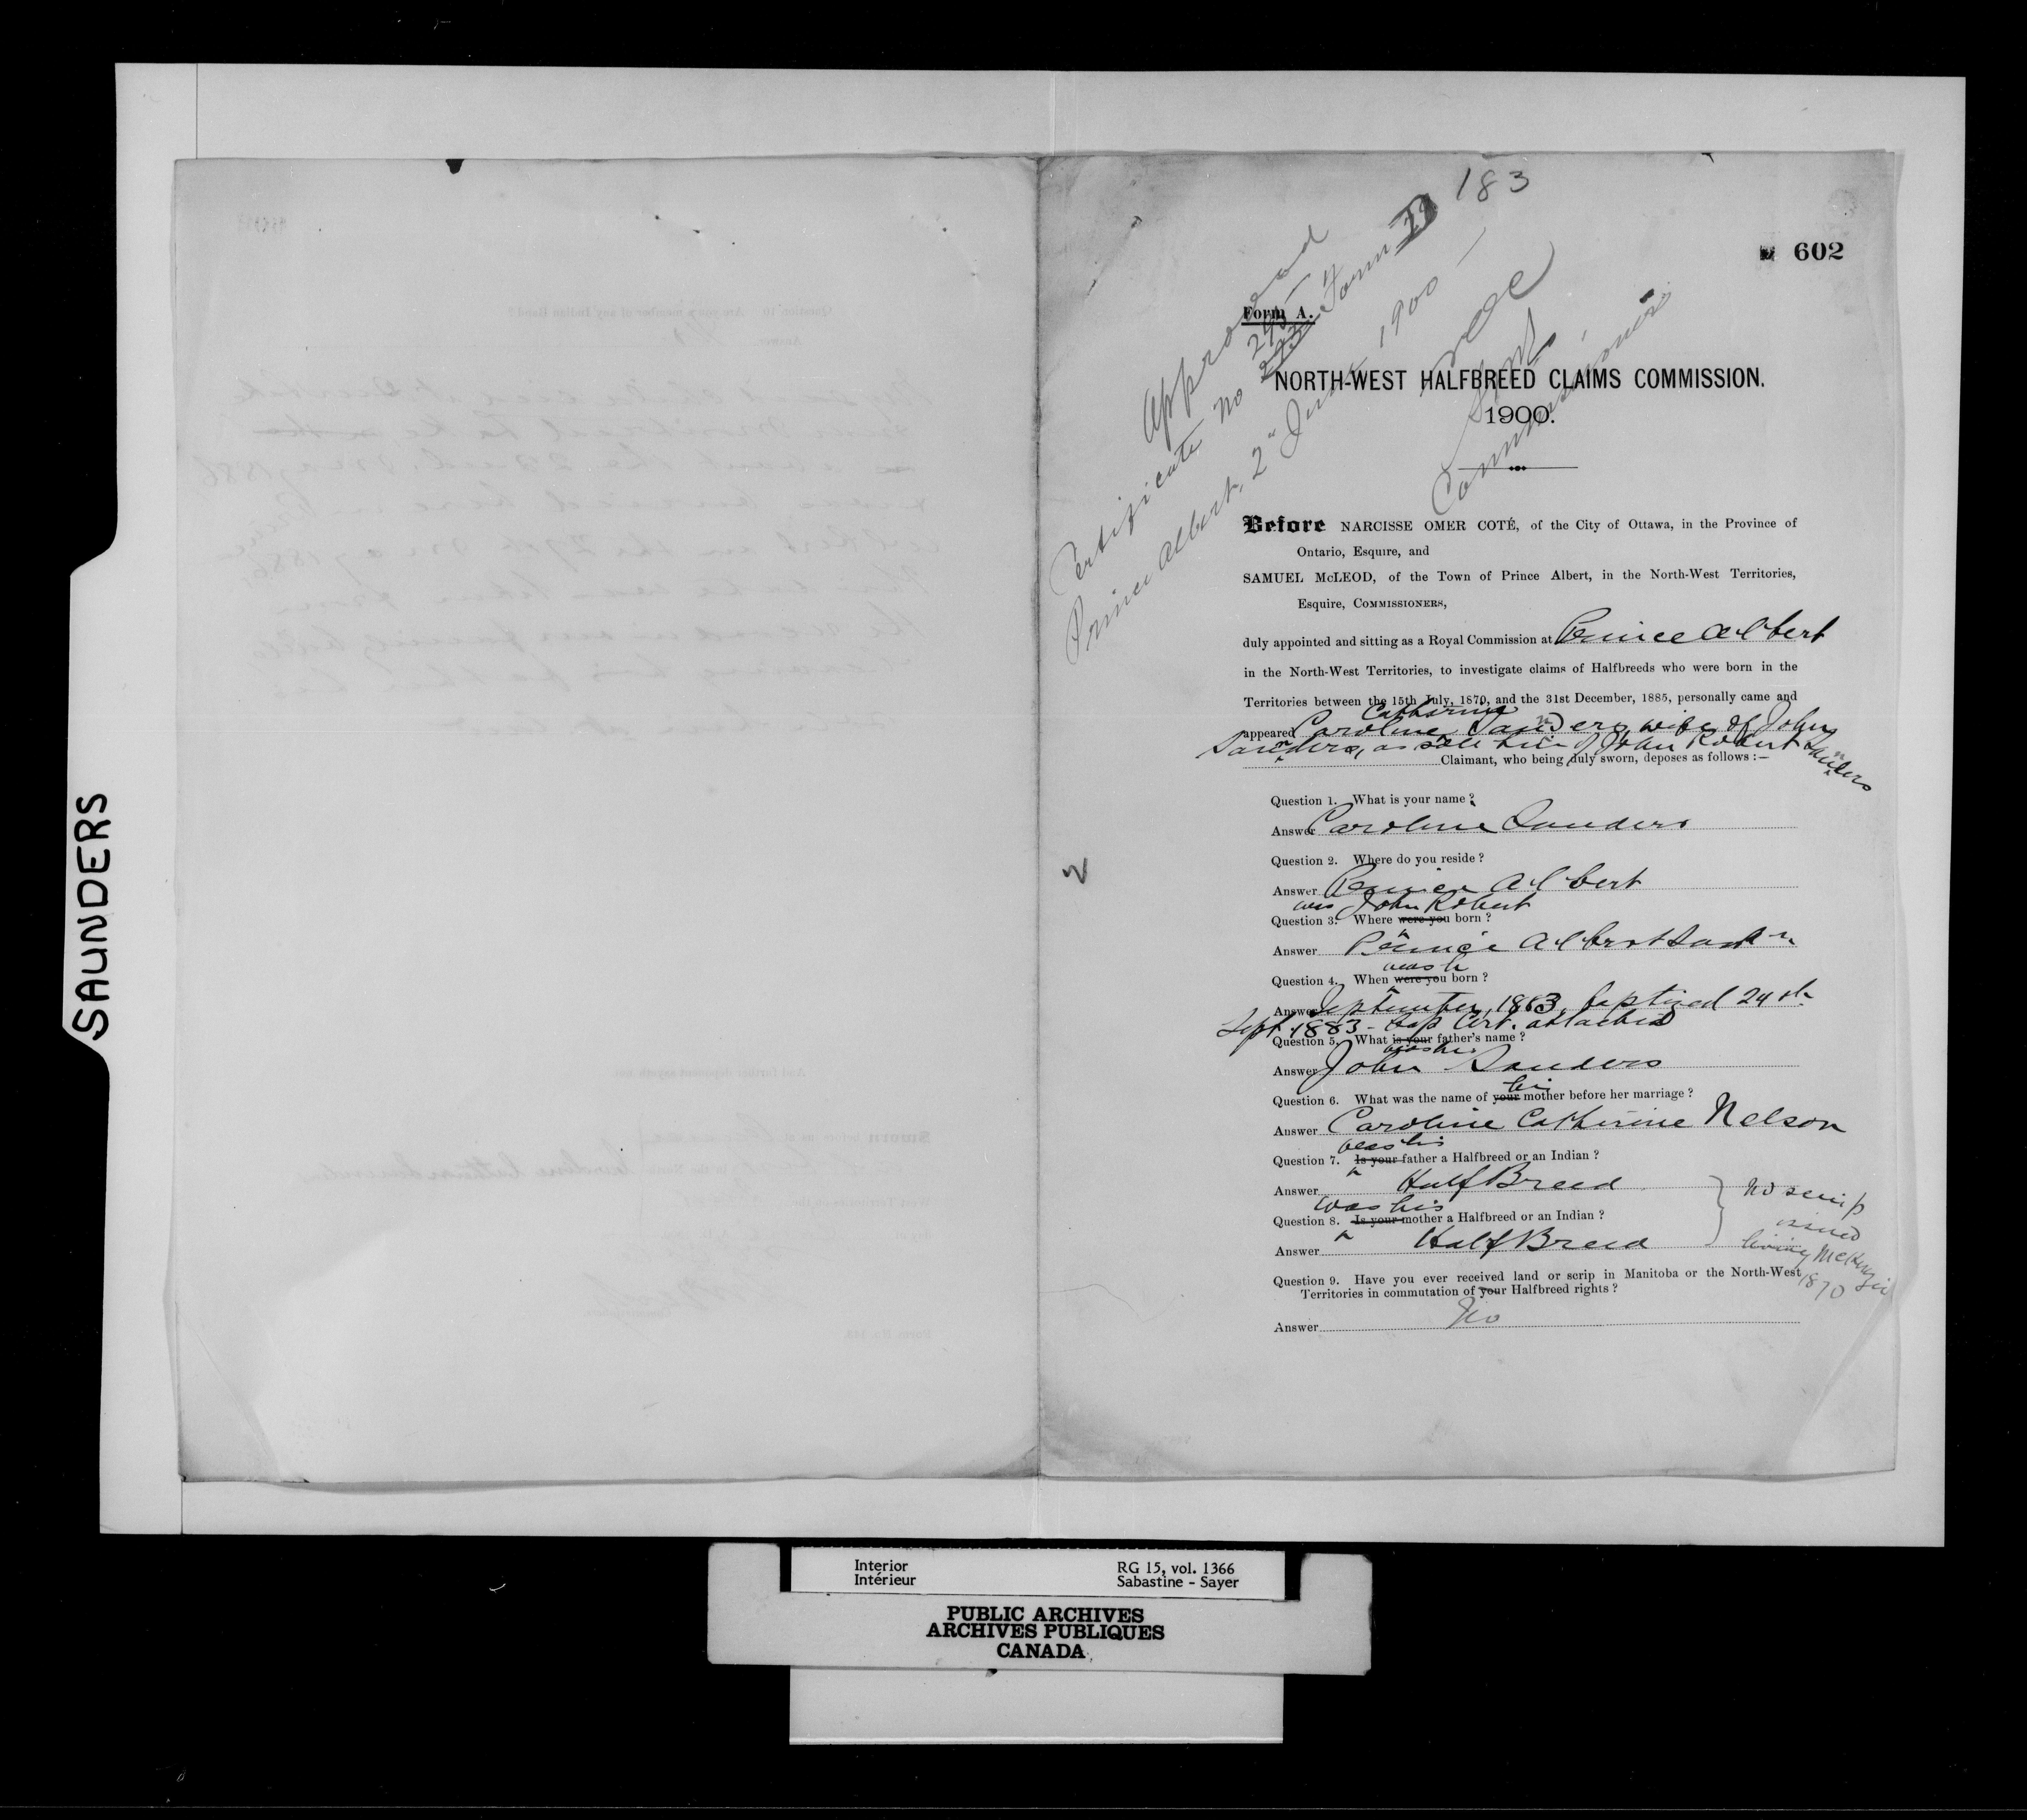 183
602
Approved
Certificate No 293 Form D
Prince Albert, 2" June 1900
NOC
SMc
Commissioners
Form A.
NORTH-WEST HALFBREED CLAIMS COMMISSION.
1900.
Before NARCISSE OMER COTÉ, of the City of Ottawa, in the Province of
Ontario, Esquire, and
SAMUEL McLEOD, of the Town of Prince Albert, in the North-West Territories,
Esquire, COMMISSIONERS,
duly appointed and sitting as a Royal Commission at Prince Albert
in the North-West Territories, to investigate claims of Halfbreeds who were born in the
Territories between the 15th July, 1870, and the 31st December, 1885, personally came and
Catherine
appeared Caroline Sanders, wife of John
Sanders, as sole heir of John Robert Sanders
Claimant, who being duly sworn, deposes as follows :—
Question 1. What is your name ?
Answer Caroline Sanders
Question 2. Where do you reside ?
Answer Prince Albert
was John Robert
Question 3. Where were you born ?
Answer Prince Albert
was he
Question 4. When were you born ?
Answer September, 1883, baptized 24th
Sept. 1883 - Bap Cert. attached
Question 5. What is your father's name ?
was his
Answer John Sanders
his
Question 6. What was the name of your mother before her marriage ?
Answer Caroline Catherine Nelson
was his
Question 7. Is your father a Halfbreed or an Indian ?
Answer Half Breed
was his
Question 8. Is your mother a Halfbreed or an Indian ?
Answer Half Breed
No scrip
issued
living McKenzie
1870
Question 9. Have you ever received land or scrip in Manitoba or the North-West
Territories in commutation of your Halfbreed rights ?
Answer No
SAUNDERS
Interior
Intérieur
RG 15, vol. 1366
Sabastine - Sayer
PUBLIC ARCHIVES
ARCHIVES PUBLIQUES
CANADA